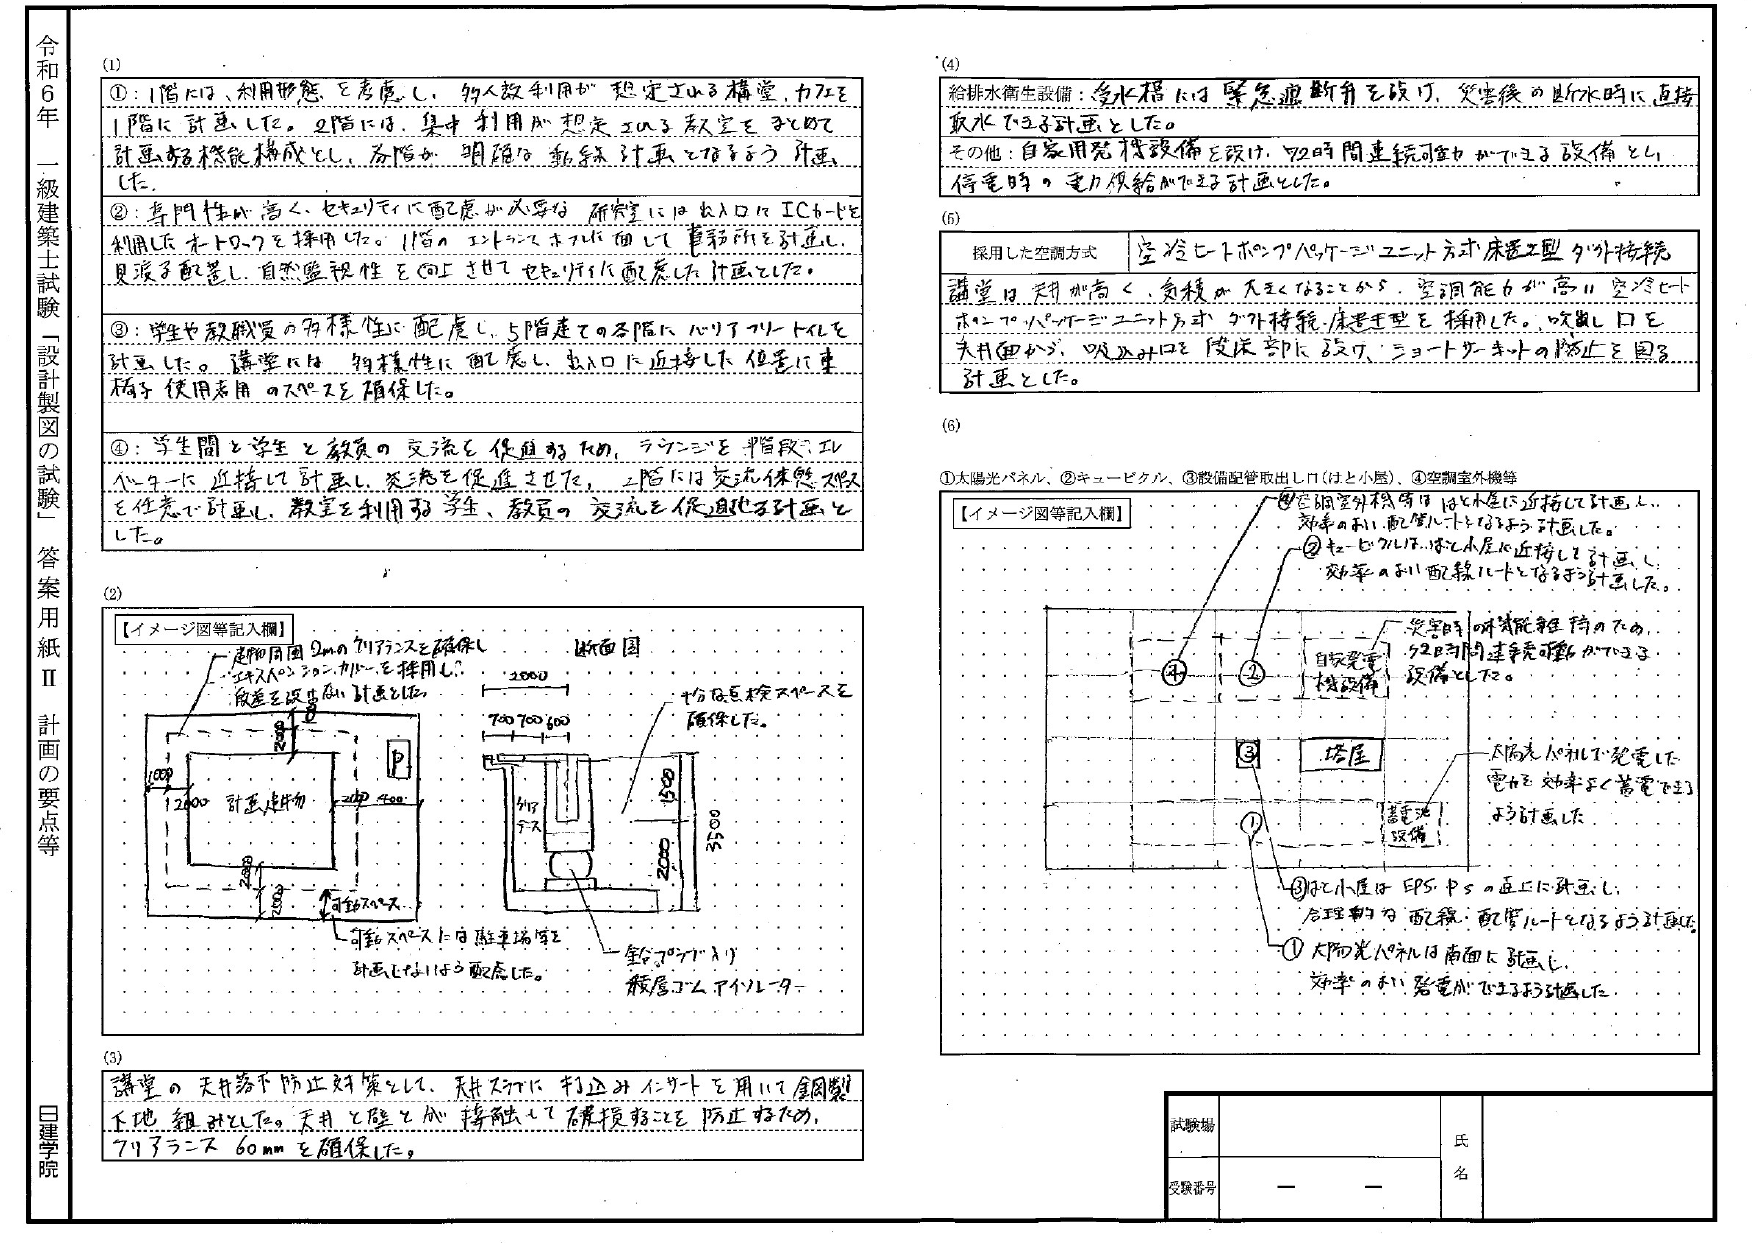 令和6年 一級建築士試験「設計製図の試験」 答案用紙Ⅱ 計画の要点等
日建学院
(1)
①：1階には、利用形態を考慮し、多人数利用が想定される構堂、カフェを
1階に計画した。2階には、集中利用が想定される教室をまとめて
計画する機能構成とし、各階が明確な動線計画となるよう計画
した。
②：専門性が高く、セキュリティに配慮が必要な研究室には出入口にICカードを
利用したオートロックを採用した。1階のエントランスホールに面して事務所を計画し、
見渡る配置し、自然監視性を向上させてセキュリティに配慮した計画とした。
③：学生や教職員の多様性に配慮し、5階建ての各階にバリアフリートイレを
計画した。講堂には多様性に配慮し、出入口に近接した位置に車
椅子使用者用のスペースを確保した。
④：学生間と学生と教員の交流を促進するため、ラウンジを階段、エレ
ベーターに近接して計画し、交流を促進させた。2階には交流休憩スペース
を任意で計画し、教室を利用する学生、教員の交流を促進する計画と
した。
(2)
【イメージ図等記入欄】
建物周囲2mのクリアランスを確保し
エキスパンションカバーを採用し
段差を設けない計画とした
断面図
2000
700 700 600
十分な点検スペースを
確保した。
P
2000
1000
2000
計画建物
200
400
クリア
ランス
1500
3500
2000
2000
2000
可動スペース
可動スペースには駐車場等を
計画しないよう配慮した。
鉛プラグ入り
積層ゴムアイソレーター
(3)
講堂の天井落下防止対策として、天井スラブに打込みインサートを用いて鋼製
下地組みとした。天井と壁とが接触して破損することを防止するため、
クリアランス60mmを確保した。
(4)
給排水衛生設備：受水槽には緊急遮断弁を設け、災害後の断水時に直接
取水できる計画とした。
その他：自家用発機設備を設け、72時間連続可動ができる設備とし
停電時の電力供給ができる計画とした。
(5)
採用した空調方式
空冷ヒートポンプパッケージユニット方式 床置き型 ダクト接続
講堂は天井が高く、気積が大きくなることから、空調能力が高い空冷ヒート
ポンプパッケージユニット方式 ダクト接続・床置き型を採用した。吹出し口を
天井面から、吸込み口を段床部に設け、ショートサーキットの防止を図る
計画とした。
(6)
①太陽光パネル、②キュービクル、③設備配管取出し口(はと小屋)、④空調室外機等
【イメージ図等記入欄】
④空調室外機等ははと小屋に近接して計画し、
効率のよい配管ルートとなるよう計画した。
②キュービクルは、はと小屋に近接して計画し
効率のよい配線ルートとなるよう計画した。
災害時の機能維持のため、
72時間連続可動ができる
設備とした。
④
②
自家発電
機設備
③
塔屋
太陽光パネルで発電した
電力を効率よく蓄電できる
よう計画した
①
蓄電池
設備
③はと小屋はEPS・PSの直上に計画し、
合理的な配線・配管ルートとなるよう計画した。
①太陽光パネルは南面に計画し、
効率のよい発電ができるよう計画した
試験場
氏
名
受験番号 － －